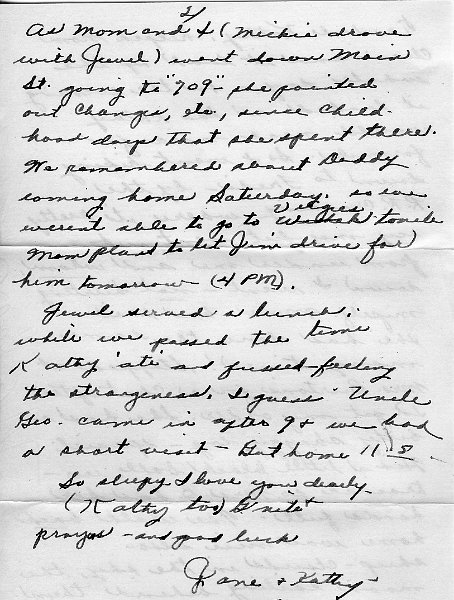 2/
As Mom and I (Mickie drove
with Jewel) went down Main
St. going to "709" she pointed
out changes, etc, since child-
hood days that she spent there.
We remembered about Daddy
coming home Saturday. so we
weren't able to go to Virgies tonite
Mom plans to let Jim drive for
him tomorrow (4 PM).
Jewel served a lunch.
while we passed the time
Kathy 'ate' and fussed - feeling
the strangeness. I guess Uncle
Geo. came in after 9 & we had
a short visit - Got home 11
So sleepy I love you dearly -
(Kathy too) G'nite +
prayers - and good luck
Jane + Kathy -